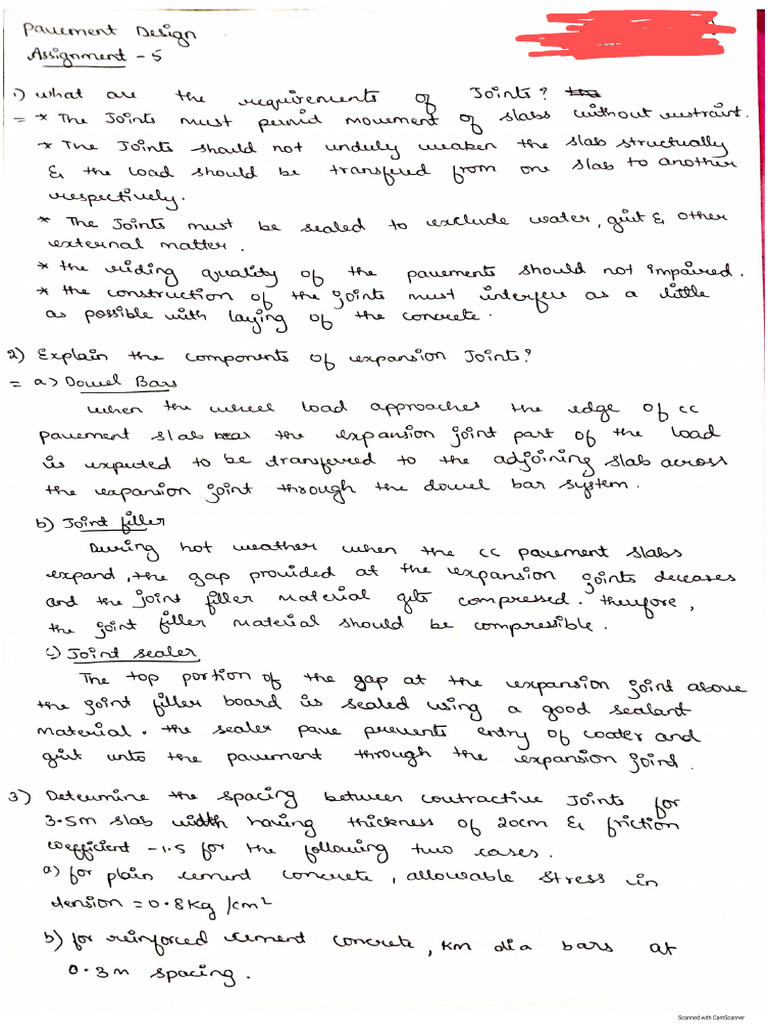 Pavement Design
Assignment - 5
1) What are the requirements of Joints?
= * The Joints must permit movement of slabs without restraint.
* The Joints should not unduly weaken the slab structually
& the load should be transfered from one slab to another
respectively.
* The Joints must be sealed to exclude water, grit & other
external matter.
* the riding quality of the pavements should not impaired.
* the construction of the joints must interfere as a little
as possible with laying of the concrete.
2) Explain the components of expansion Joints?
= a) Dowel Bars
When the wheel load approaches the edge of CC
pavement slab near the expansion joint part of the load
is expected to be transferred to the adjoining slab across
the expansion joint through the dowel bar system.
b) Joint filler
During hot weather when the CC pavement slabs
expand, the gap provided at the expansion joints deceases
and the joint filler material gets compressed. therefore,
the joint filler material should be compressible.
c) Joint sealer
The top portion of the gap at the expansion joint above
the joint filler board is sealed using a good sealant
material. the sealer pave prevents entry of coater and
grit unto the pavement through the expansion joint.
3) Determine the spacing between contractive Joints for
3.5m slab width having thickness of 20cm & friction
coefficient - 1.5 for the following two cases.
a) for plain cement concrete, allowable stress in
tension = 0.8 Kg/cm²
b) for reinforced cement concrete, km dia bars at
0.3m spacing.
Scanned with CamScanner